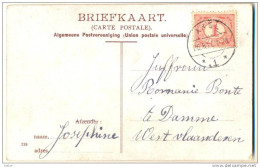 BRIEFKAART.
(CARTE POSTALE).
Algemeene Postvereeniging (Union postale universelle).
Juffrouw
Romanie Bonte
te Damme
West vlaanderen
Afzender:
naam,
en
adres:
Josephine